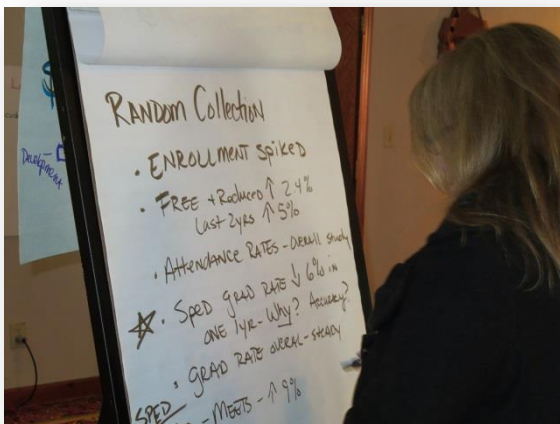 Development
RANDOM COLLECTION
• ENROLLMENT SPIKED
• FREE + Reduced ↑ 2.4%
Last 2yrs ↑ 5%
• Attendance Rates - overall steady
☆ • Sped grad rate ↓ 6% in
one 1yr - Why? Accuracy?
• GRAD RATE overal - steady
SPED
- MEETS - ↑ 9%